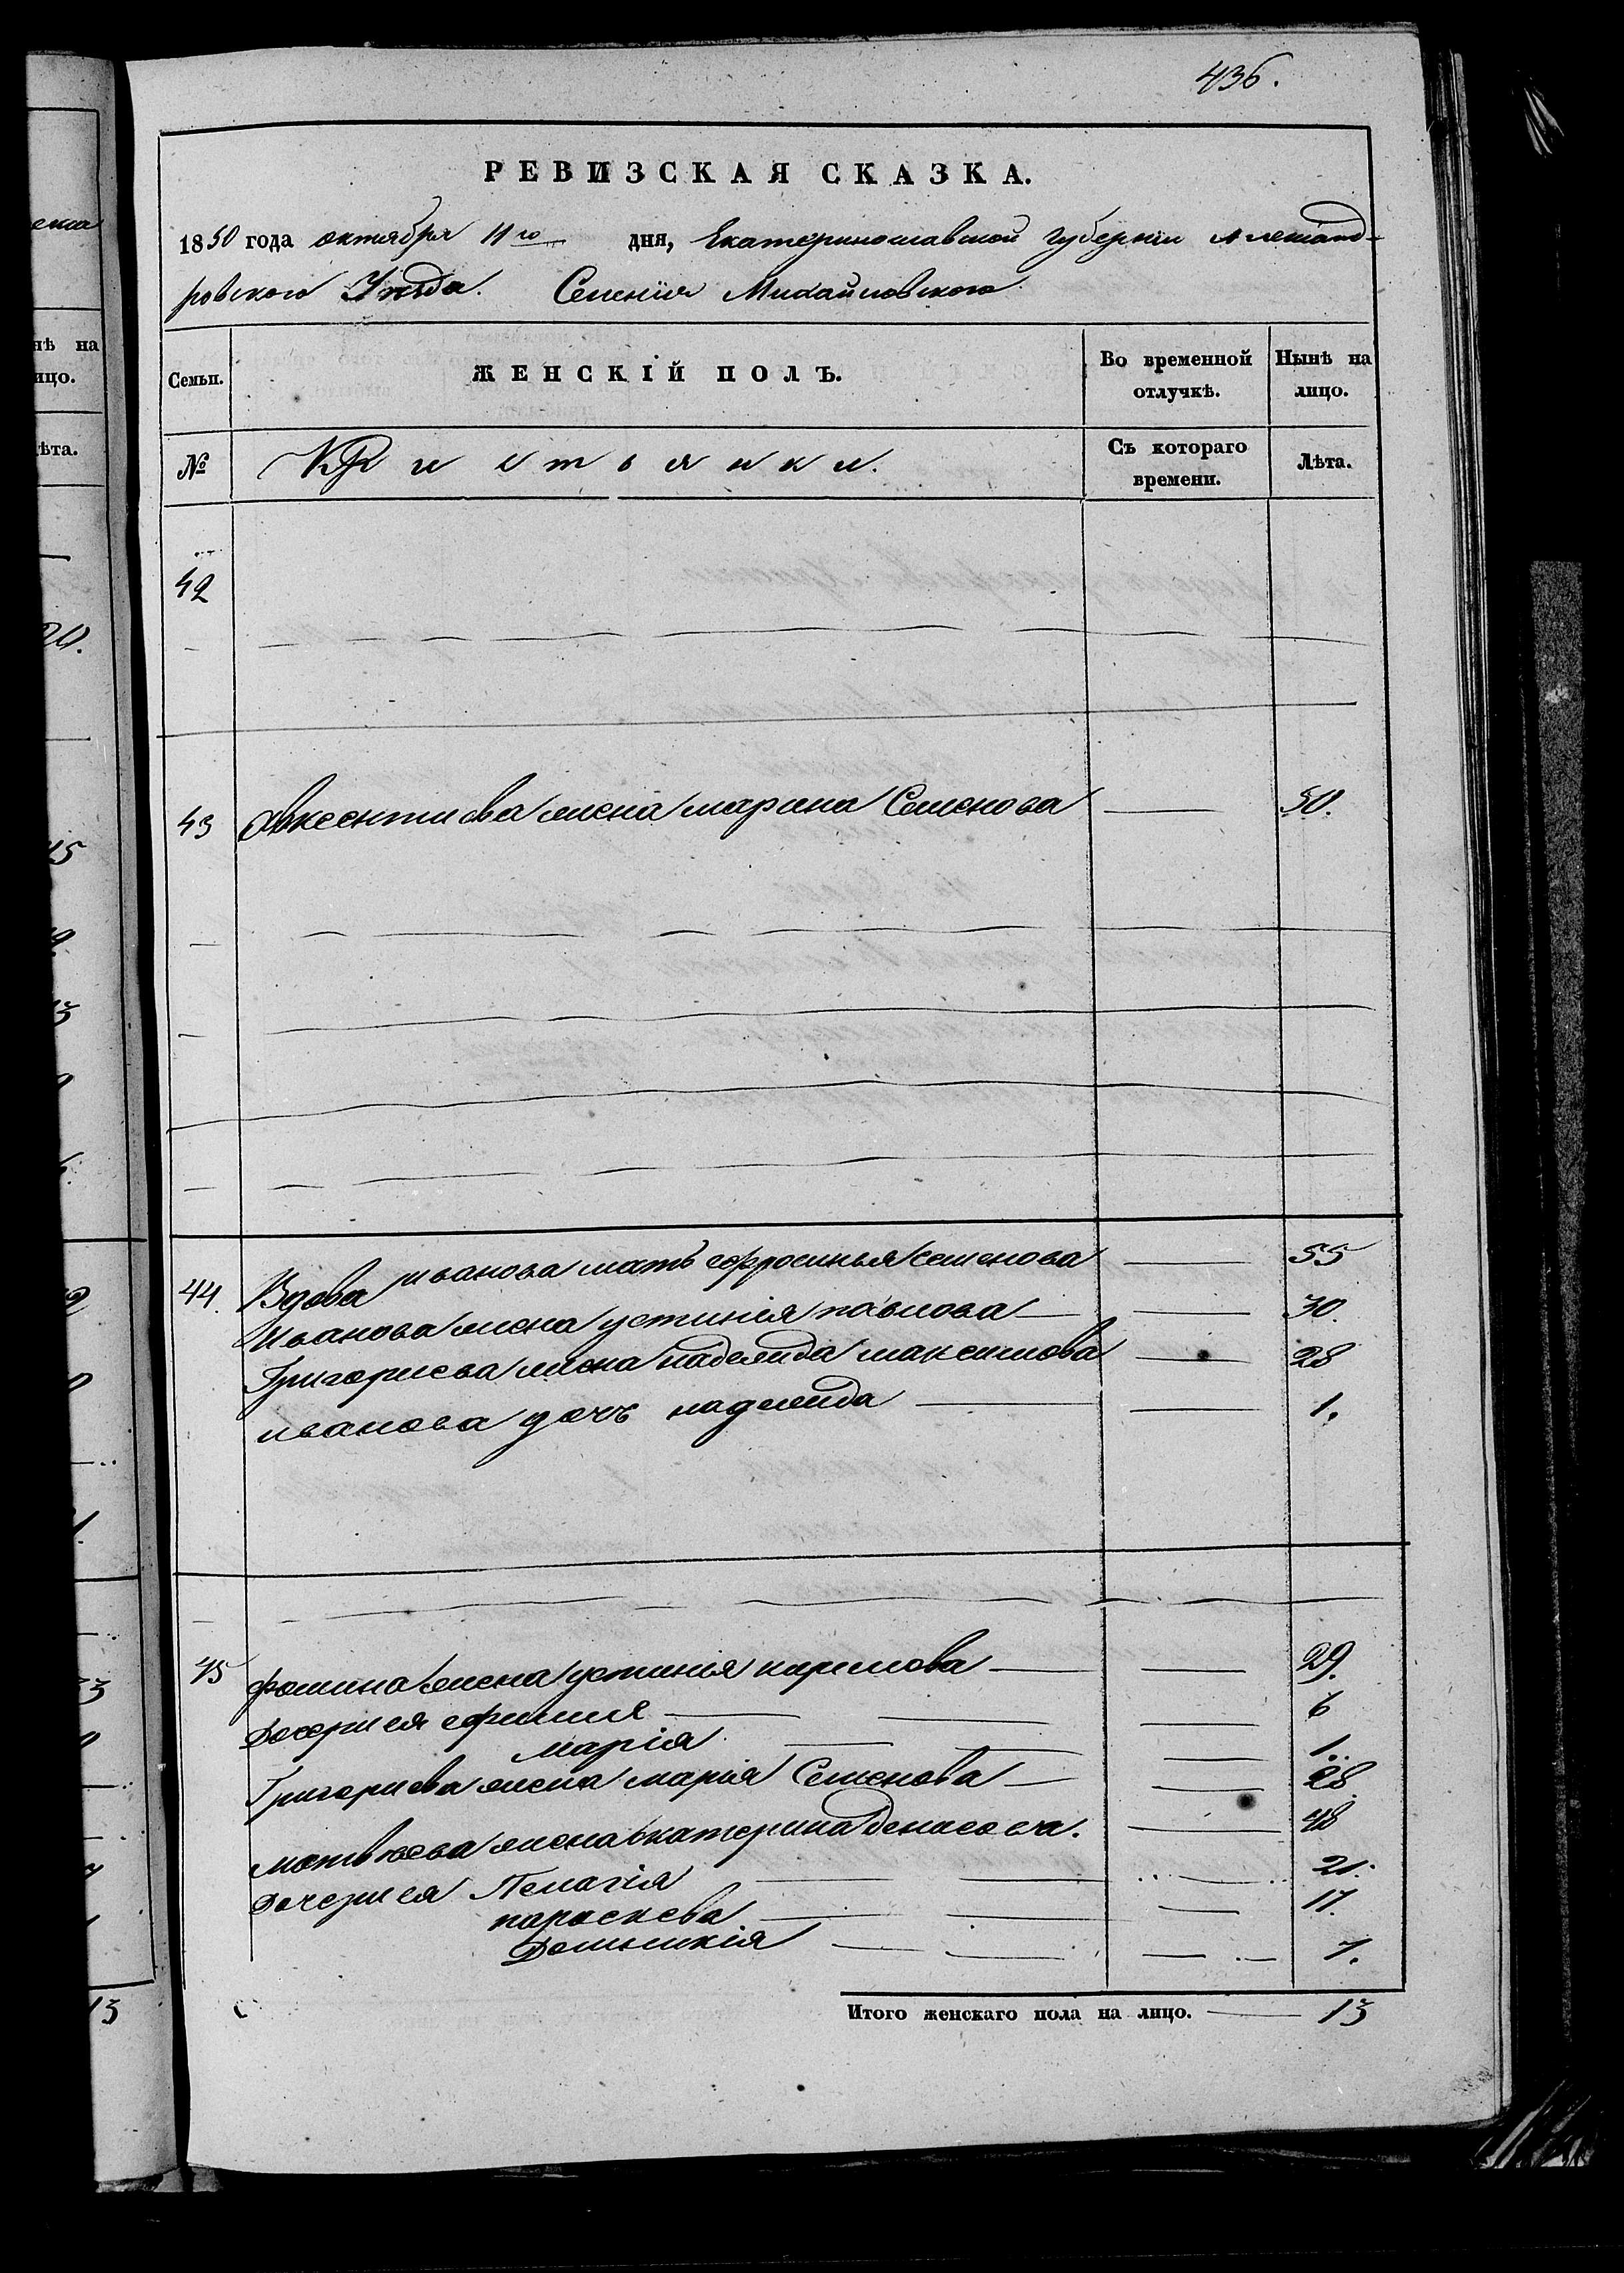 436.
РЕВИЗСКАЯ СКАЗКА.
1850 года октября 11го дня, Екатеринославской губернiи Александ-
ровского Уезда. Селенiя Михайловского
Семьи. ЖЕНСКІЙ ПОЛЪ. Во временной отлучкѣ. Нынѣ на лицо.
№ Крестьянки. Съ котораго времени. Лѣта.
42
43 Авксентиева жена марина Семенова — 50.
44. Вдова иванова мать ефросинья семенова — 55
Иванова жена устинiя павлова — 30.
Григориева жена надежда максимова — 28
иванова дочь надежда — 1.
45 фомина жена устинiя кирилова — 29.
Дочери ея ефимия — 6
марiя — 1.
Григориева жена марiя Семенова — 28
матвѣева жена екатерина — 48
Дочери ея Пелагiя — 21.
параскева — 17.
Домникiя — 7.
Итого женскаго пола на лицо. — 13
нѣ на
ицо.
ѣта.
20.
15
13